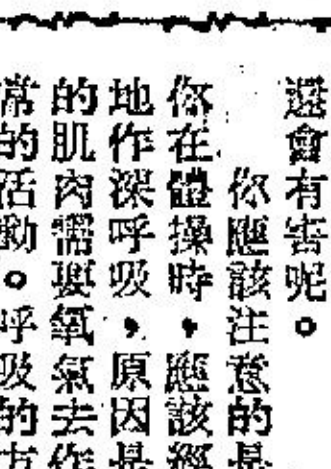 還會有害呢。
你應該注意的是
你在體操時，應該經
地作深呼吸，原因是
的肌肉需要氧氣去作
常的活動。呼吸的方